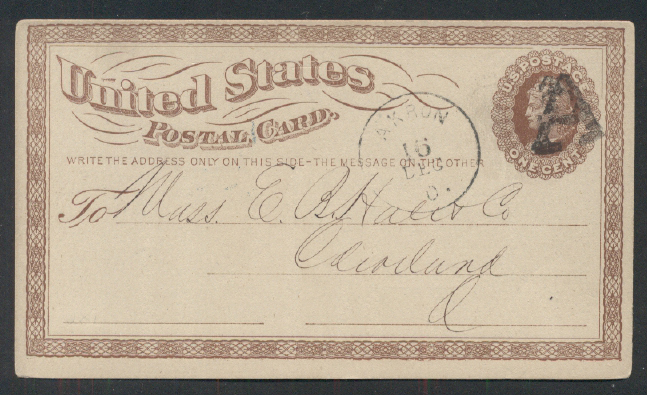 United States
POSTAL CARD.
U.S. POSTAGE
ONE CENT
WRITE THE ADDRESS ONLY ON THIS SIDE - THE MESSAGE ON THE OTHER
AKRON
16
DEC
O.
To Mess. E. B. Hale & Co
Cleveland
O